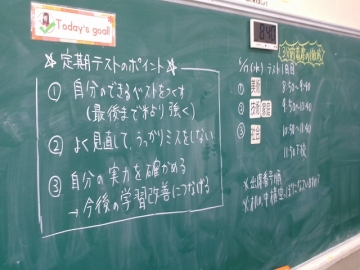 Today's goal!
☆定期テストのポイント☆
① 自分のできるベストをつくす
(最後まで粘り強く)
② よく見直して、うっかりミスをしない
③ 自分の実力を確かめる
→今後の学習改善につなげる
テスト1日目
① 美術 8:50〜9:40
② 技術・家庭
③ 社会 10:50〜11:40
11:50下校
※出席番号順